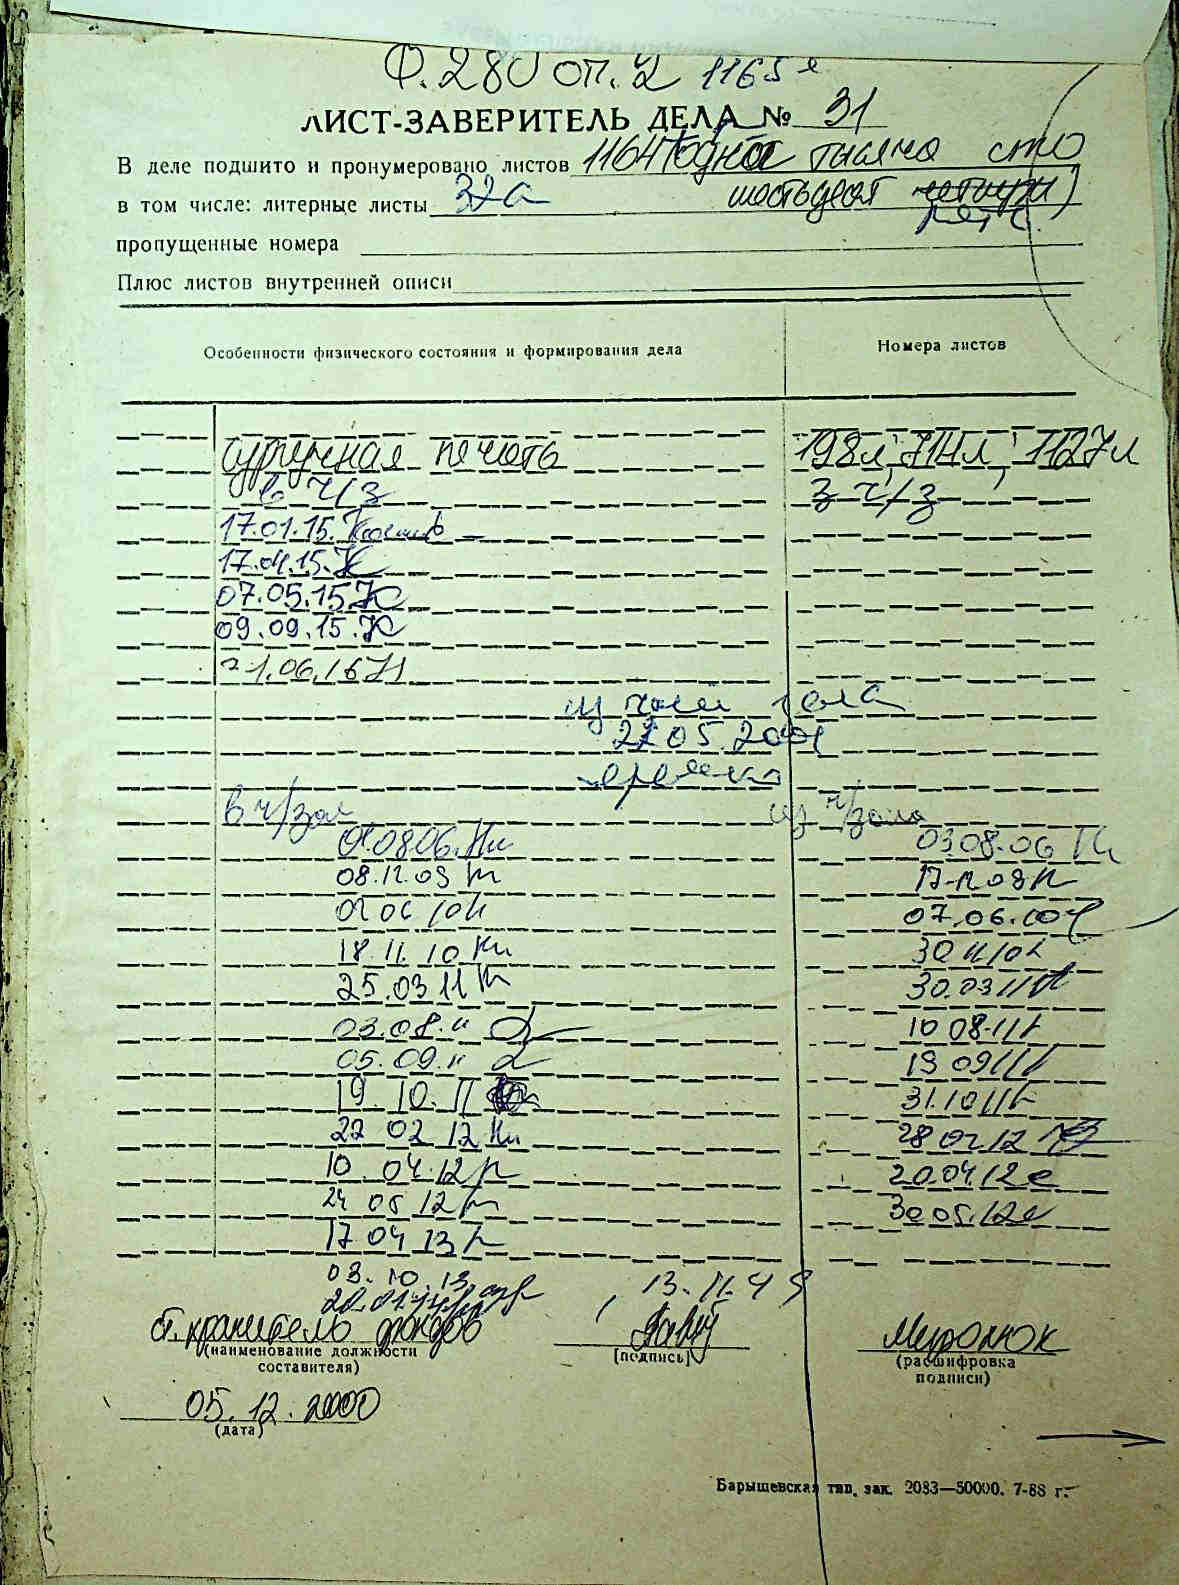 Ф. 280 оп. 2 1165 л
ЛИСТ-ЗАВЕРИТЕЛЬ ДЕЛА № 31
В деле подшито и пронумеровано листов 1164 (одна тысяча сто
в том числе: литерные листы 32а шестьдесят четыре)
пять
пропущенные номера
Плюс листов внутренней описи
Особенности физического состояния и формирования дела Номера листов
сургучная печать 198л, 714л, 1127л
в ч/з з ч/з
17.01.15.
17.04.15.
07.05.15
09.09.15.
21.06.16
из чит зала
22.05.2001
в ч/зал из ч/зала
01.08.06. 03.08.06
08.12.09 17.12.09
02 06 10 07.06.10
18.11.10 30 11 10
25.03 11 30.03 11
03.08.11 10 08.11
05.09.11 19 09 11
19.10.11 31.10 11
22 02 12 28 02 12
10 04.12 20.04.12
24 05 12 30 05.12
17 04 13
03.10.13. 13.11.
20.01.14
ст. хранитель фондов Миронюк
(наименование должности составителя) (подпись) (расшифровка подписи)
05.12.2000
(дата)
Барышевская тип. зак. 2083—50000. 7-88 г.